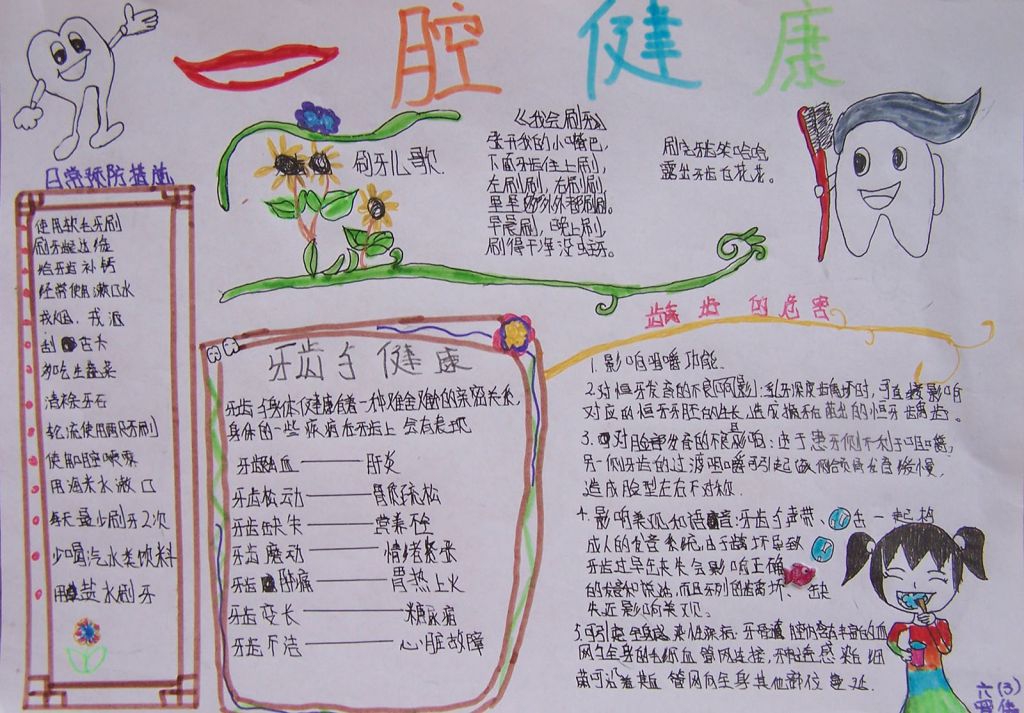 腔健康
日常预防措施
使用软毛牙刷
给牙齿补钙
经常使用漱口水
多吃生蔬菜
清除牙石
轮流使用两只牙刷
使用口腔喷雾
用海米水漱口
每天最少刷牙2次
少喝汽水类饮料
用盐水刷牙
刷牙儿歌
《我会刷牙》
张开我的小嘴巴,
下底牙齿往上刷,
左刷刷,右刷刷,
里里外外都刷刷。
早晨刷,晚上刷,
刷得干净没虫牙。
刷完牙齿笑哈哈,
露出牙齿白花花。
牙齿与健康
牙齿与身体健康有着一种难舍难分的亲密关系,
身体的一些疾病在牙齿上会有表现
牙龈出血——肝炎
牙齿松动——骨质疏松
牙齿缺失——营养不全
牙齿磨动——情绪紧张
牙齿肿痛——胃热上火
牙齿变长——糖尿病
牙齿不洁——心脏故障
龋齿的危害
1.影响咀嚼功能.
2.对恒牙发育的不良影响:乳牙深度龋坏时,可直接影响
对应的恒牙牙胚的生长,造成换牙后萌出的恒牙龋齿。
3.对脸部发育的不良影响:由于患牙侧不利于咀嚼,
另一侧牙齿的过渡咀嚼可引起侧颌骨发育缓慢,
造成脸型左右不对称.
4.影响美观和语音:牙齿与声带、舌一起构
成人的发音系统,由于龋坏导致
牙齿过早丢失会影响正确
的发音和说话,而且牙列的龋坏、缺
失还影响美观。
网与全身的毛细血管网连接,牙髓感染细
菌可沿着其血管网向全身其他部位蔓延.
六(3)